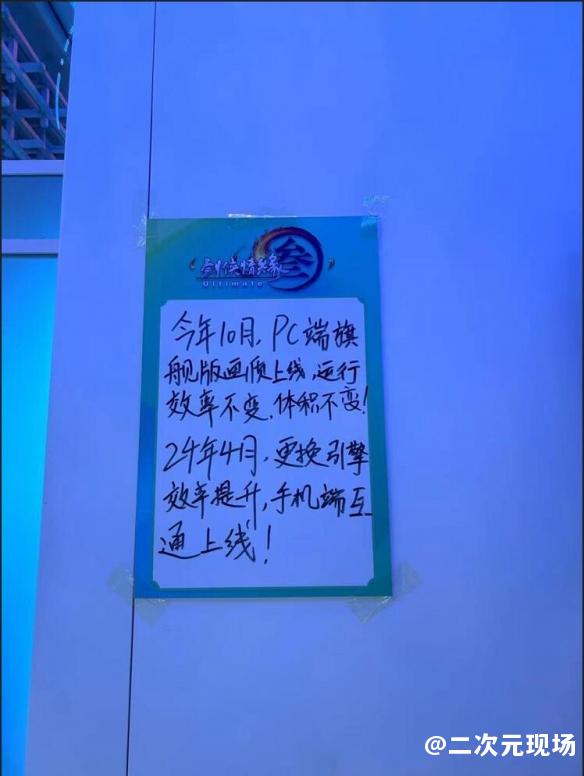 剑侠情缘叁
Ultimate
今年10月,PC端旗
舰版画质上线,运行
效率不变,体积不变!
24年4月,更换引擎
效率提升,手机端互
通上线!
@二次元现场